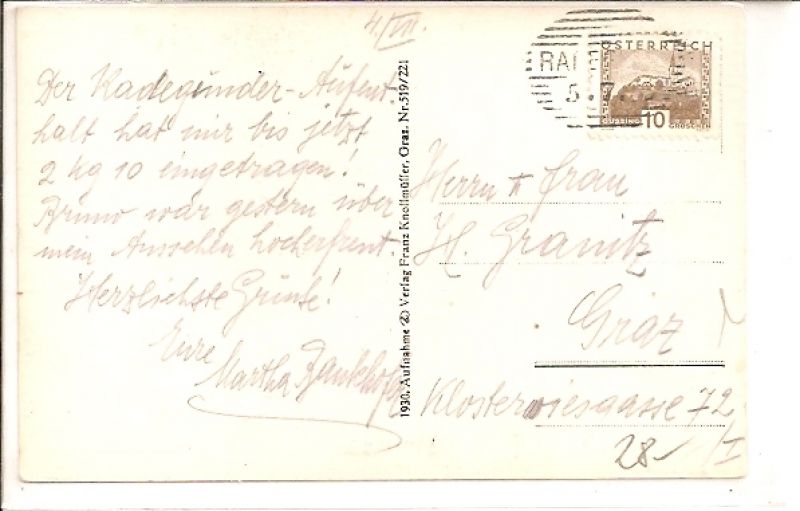 4./VII.
Der Radegunder-Aufent-
halt hat mir bis jetzt
2 kg 10 eingetragen!
Bruno war gestern über
mein Aussehen hocherfreut!
Herzlichste Grüsse!
Eure
Martha
1930. Aufnahme (K) Verlag Franz Knollmüller, Graz. Nr.519/221
ÖSTERREICH
GÜSSING 10 GROSCHEN
5.7.
Herrn u Frau
H. Granitz
Graz
Klosterwiesgasse 72
/I
28-